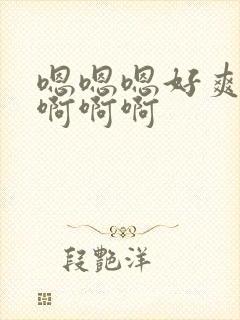 嗯嗯嗯好爽
啊啊啊
段艷洋